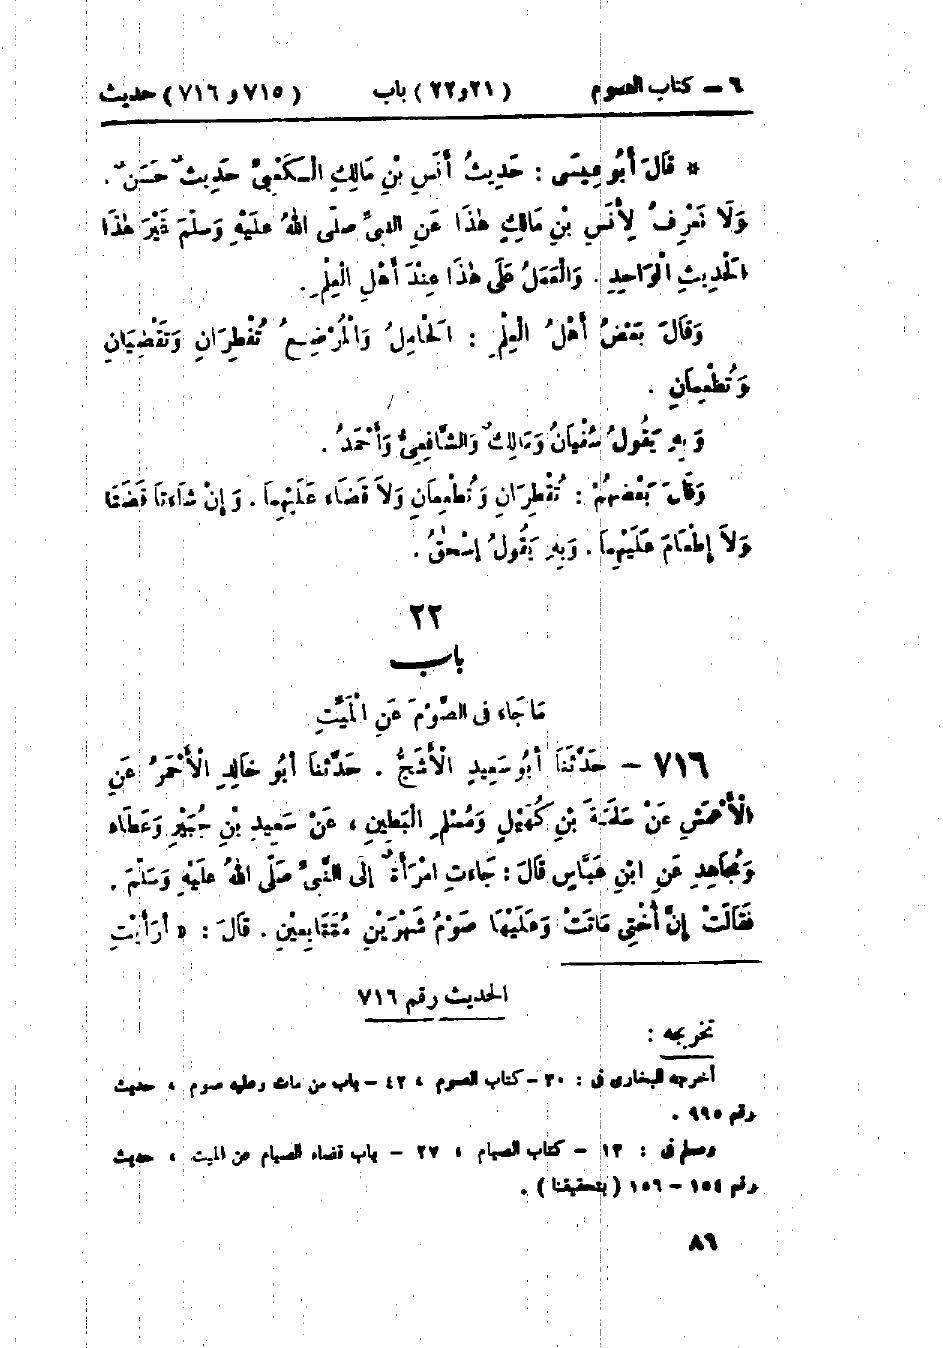 ٦ – كتاب الصوم (٢١و٢٢) باب (٧١٥ و ٧١٦) حديث
* قَالَ أَبُو عِيسَى : حَدِيثُ أَنَسِ بْنِ مَالِكٍ الْكَعْبِىِّ حَدِيثٌ حَسَنٌ .
وَلَا نَعْرِفُ لِأَنَسِ بْنِ مَالِكٍ هٰذَا عَنِ النبىِّ صلّى اللهُ علَيْهِ وَسلّمَ غَيْرَ هٰذَا
الْحَدِيثِ الْوَاحِدِ . وَالْعَمَلُ عَلَى هٰذَا عِنْدَ أَهْلِ الْعِلْمِ .
وَقَالَ بَعْضُ أَهْلُ الْعِلْمِ : الْحَامِلُ وَالْمُرْضِعُ تُفْطِرَانِ وَتَقْضِيَانِ
وَتُطْعِمَانِ .
وَ بِهِ يَقُولُ سُفْيَانُ وَمَالِكٌ وَالشَّافِعِىُّ وَأَحْمَدُ .
وَقَالَ بَعْضُهُمْ : تُفْطِرَانِ وَتُطْعِمَانِ وَلاَ قَضَاءَ عَلَيْهِمَا . وَإِنْ شَاءَتَا قَضَتَا
وَلاَ إِطْعَامَ عَلَيْهِمَا . وَبِهِ يَقُولُ إسْحٰقُ .
٢٢
باب
مَا جَاءَ فى الصَّوْمِ عَنِ الْمَيِّتِ
٧١٦ – حَدَّثَنَا أَبُو سَعِيدٍ الْأَشَجُّ . حَدَّثنَا أَبُو خَالِدٍ الْأَحْمَرُ عَنِ
الْأَعْمَشِ عَنْ سَلَمَةَ بْنِ كُهَيْلٍ وَمُسْلِمٍ الْبَطِينِ ، عَنْ سَعِيدِ بْنِ جُبَيْرٍ وَعَطَاء
وَمُجَاهِدٍ عَنِ ابْنِ عَبَّاسٍ قَالَ : جَاءتِ امْرَأَةٌ إِلَى النَّبِىِّ صَلَّى اللهُ علَيْهِ وَسَلّمَ .
فَقَالَتْ إِنَّ أُخْتِى مَاتَتْ وَعَلَيْهَا صَوْمُ شَهْرَيْنِ مُتَتَابِعَيْنِ . قَالَ : « أَرَأَيْتِ
الحديث رقم ٧١٦
تخريجه :
أخرجه البخارى فى : ٣٠ – كتاب الصوم ، ٤٢ – باب من مات وعليه صوم ، حديث
رقم ٩٩٥ .
ومسلم فى : ١٣ – كتاب الصيام ، ٢٧ – باب قضاء الصيام عن الميت ، حديث
رقم ١٥٤ – ١٥٦ ( بتحقيقنا ) .
٨٦